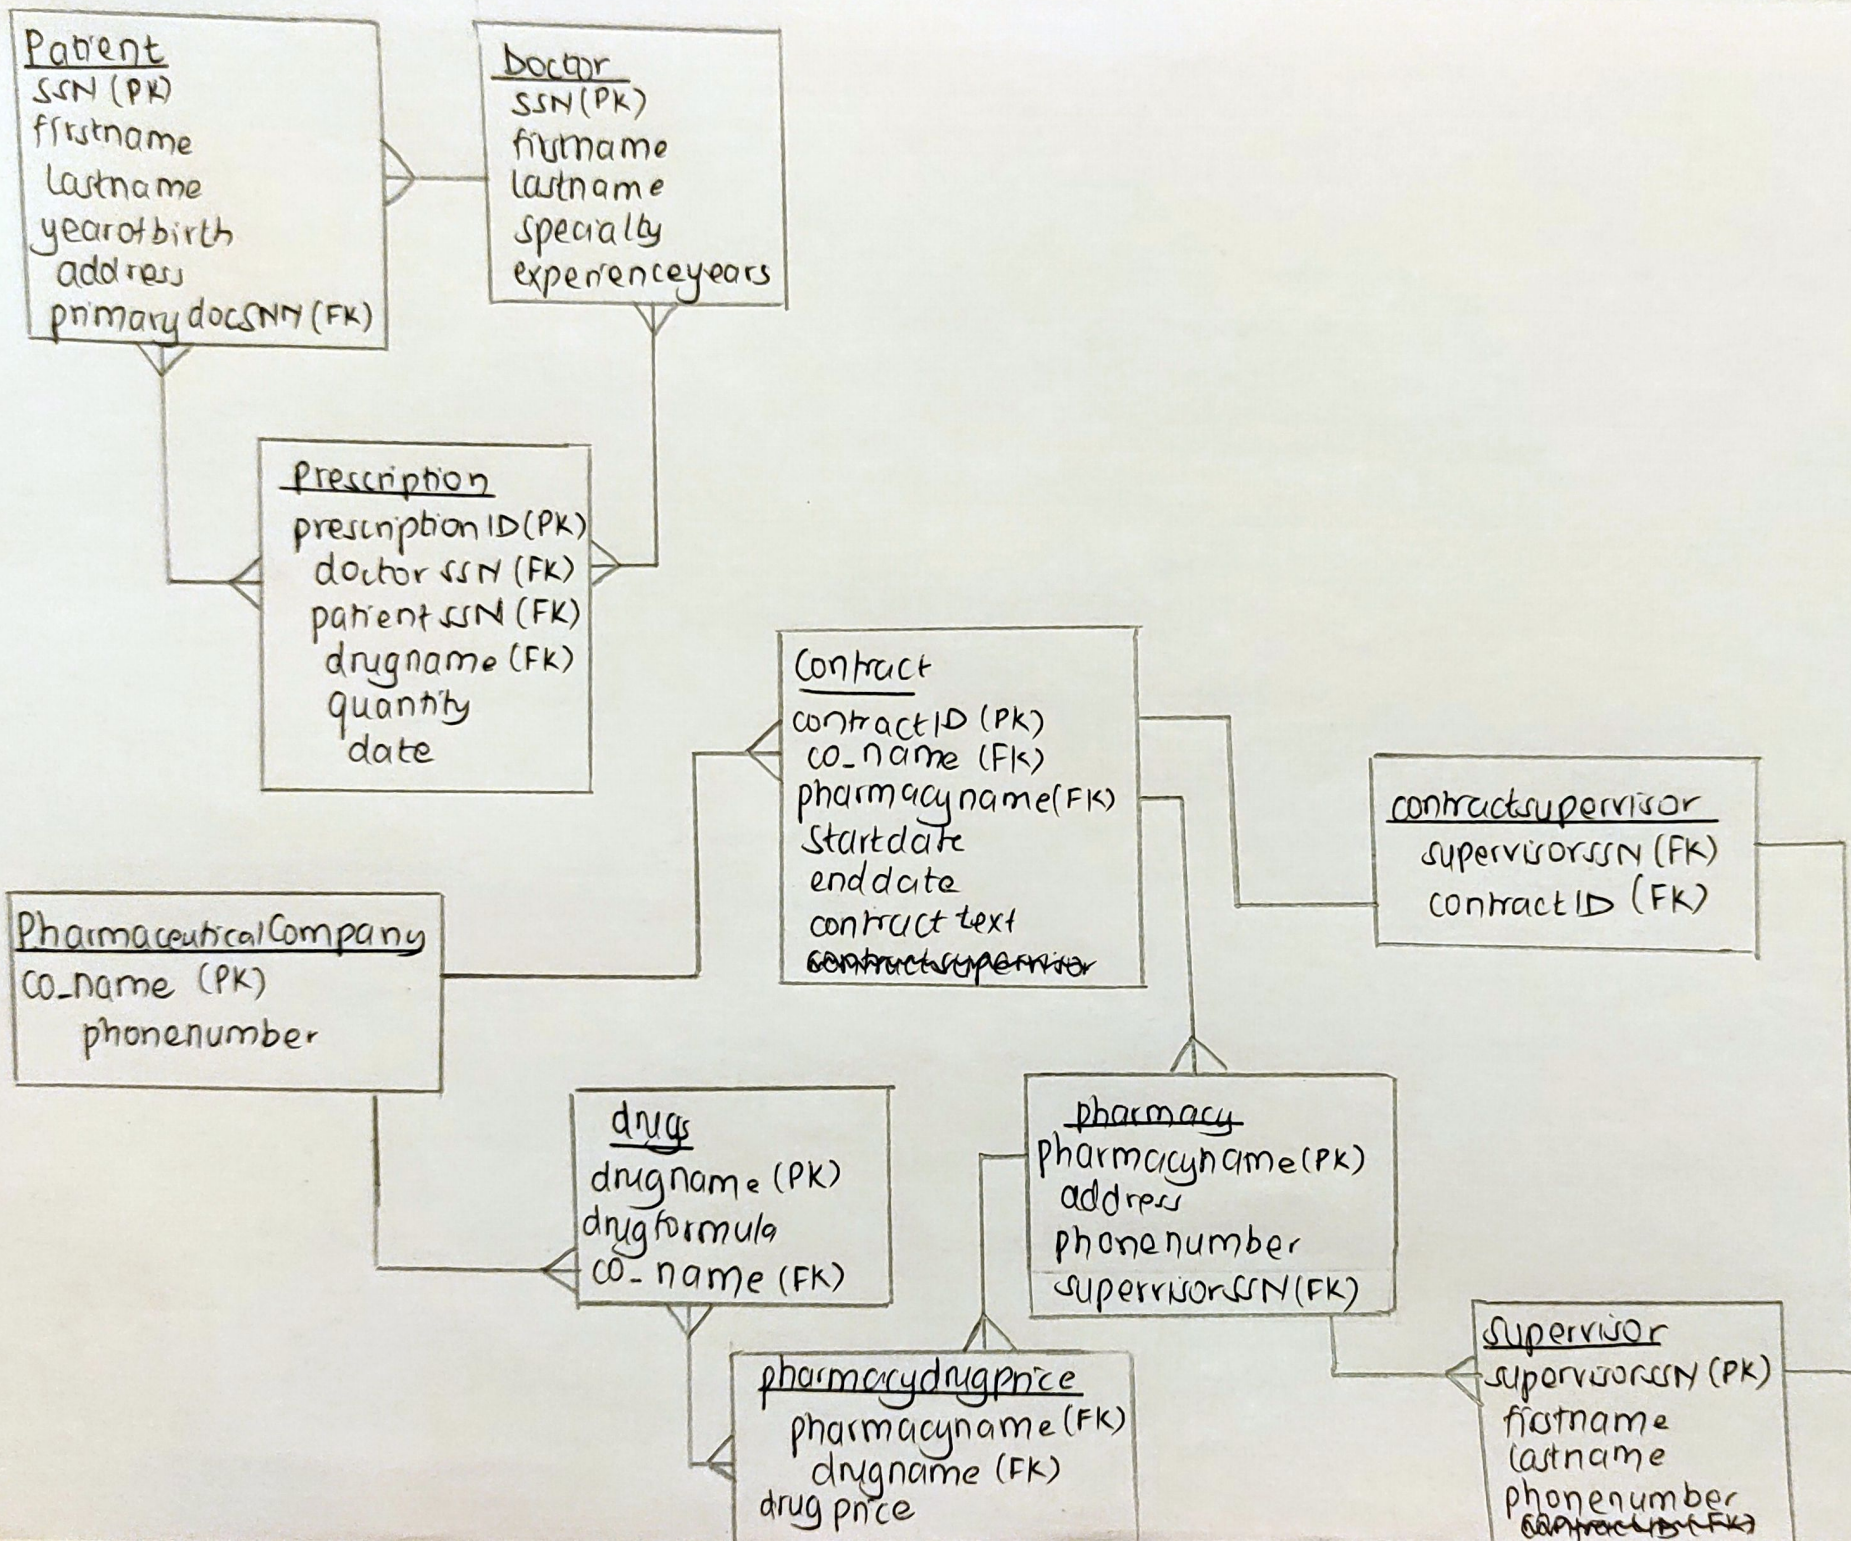 Patient
SSN (PK)
firstname
lastname
yearofbirth
address
primarydocSNN (FK)
Doctor
SSN (PK)
firstname
lastname
specialty
experienceyears
Prescription
prescriptionID (PK)
doctorSSN (FK)
patientSSN (FK)
drugname (FK)
quantity
date
Contract
contractID (PK)
co_name (FK)
pharmacyname (FK)
startdate
enddate
contract text
contractsupervisor
contractsupervisor
supervisorSSN (FK)
contractID (FK)
PharmaceuticalCompany
co_name (PK)
phonenumber
drugs
drugname (PK)
drugformula
co_name (FK)
pharmacy
pharmacyname (PK)
address
phonenumber
supervisorSSN (FK)
pharmacydrugprice
pharmacyname (FK)
drugname (FK)
drug price
supervisor
supervisorSSN (PK)
firstname
lastname
phonenumber
contractID (FK)